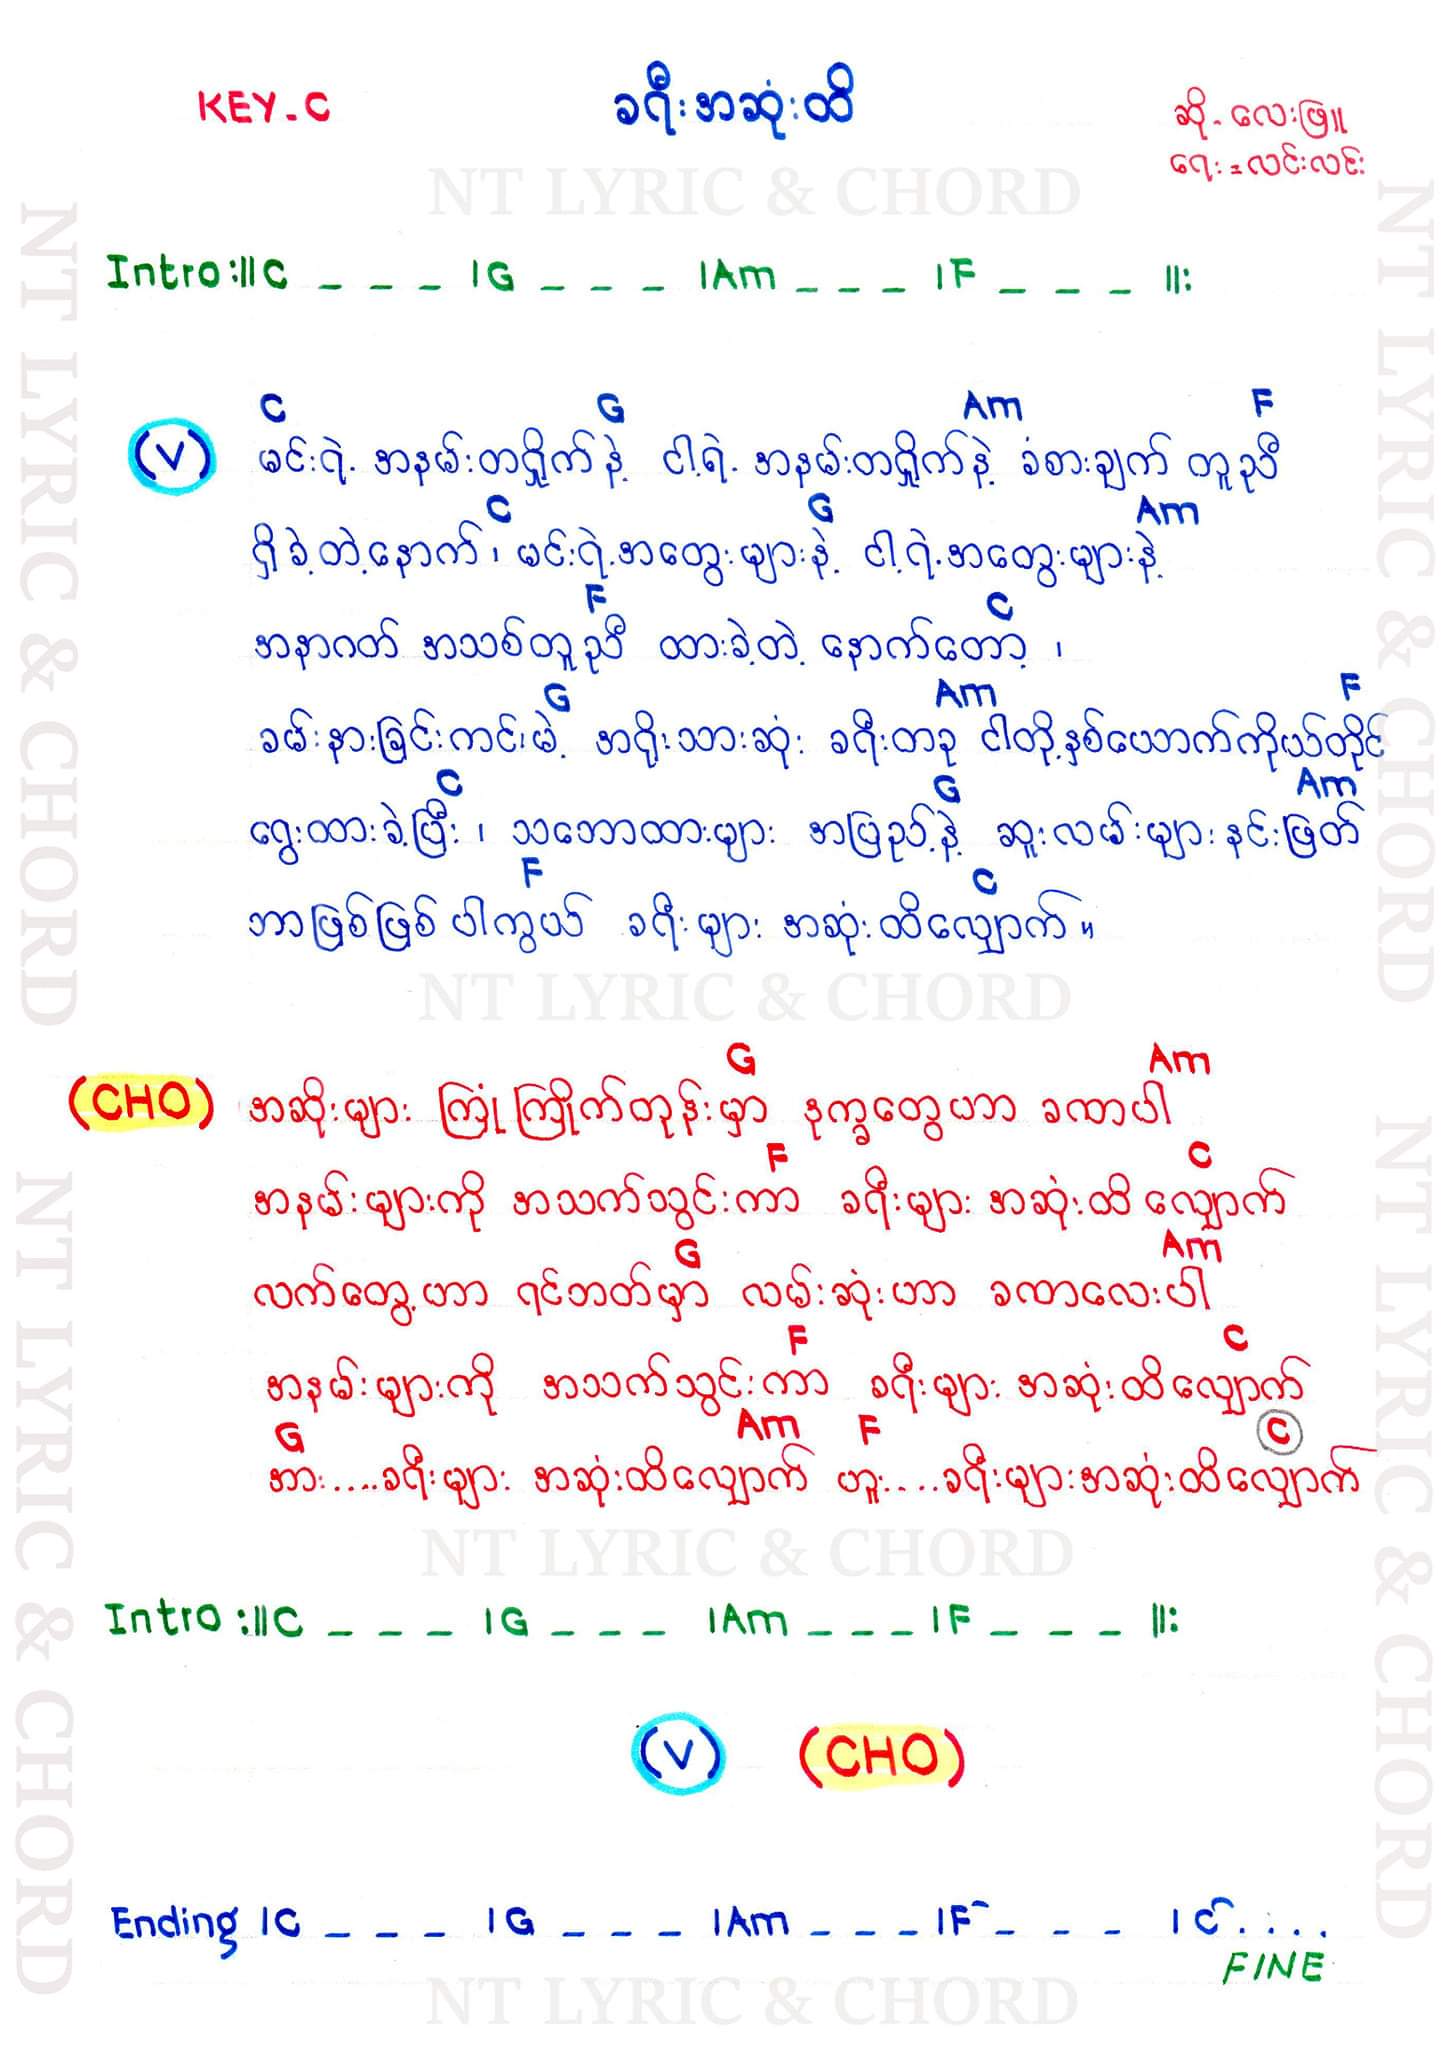 KEY-C
ခရီးအဆုံးထိ
ဆို - လေးဖြူ
ရေး = လင်းလင်း
NT LYRIC & CHORD
Intro :||C _ _ _ |G _ _ _ |Am _ _ _ |F _ _ _ ||:
C G Am F
(V) မင်းရဲ့ အနမ်းတရှိုက်နဲ့ ငါ့ရဲ့ အနမ်းတရှိုက်နဲ့ ခံစားချက် တူညီ
C G Am
ရှိခဲ့တဲ့နောက်၊ မင်းရဲ့အတွေးများနဲ့ ငါ့ရဲ့အတွေးများနဲ့
F C
အနာဂတ် အသစ်တူညီ ထားခဲ့တဲ့ နောက်တော့ ၊
G Am F
ခမ်းနားခြင်းကင်းမဲ့ အရိုးသားဆုံး ခရီးတခု ငါတို့နှစ်ယောက်ကိုယ်တိုင်
C G Am
ရွေးထားခဲ့ပြီး ၊ သဘောထားများ အပြည့်နဲ့ ဆူးလမ်းများနင်းဖြတ်
F C
ဘာဖြစ်ဖြစ်ပါကွယ် ခရီးများ အဆုံးထိလျှောက်။
NT LYRIC & CHORD
G Am
(CHO) အဆိုးများ ကြုံကြိုက်တုန်းမှာ ဒုက္ခတွေဟာ ခဏပါ
F C
အနမ်းများကို အသက်သွင်းကာ ခရီးများ အဆုံးထိ လျှောက်
G Am
လက်တွေ့ဟာ ရင်ဘတ်မှာ လမ်းဆုံးဟာ ခဏလေးပါ
F C
အနမ်းများကို အသက်သွင်းကာ ခရီးများ အဆုံးထိလျှောက်
G Am F C
အား....ခရီးများ အဆုံးထိလျှောက် ဟူး....ခရီးများအဆုံးထိလျှောက်
NT LYRIC & CHORD
Intro :||C _ _ _ |G _ _ _ |Am _ _ _ |F _ _ _ ||:
(V) (CHO)
Ending |C _ _ _ |G _ _ _ |Am _ _ _ |F _ _ _ |C....
FINE
NT LYRIC & CHORD
NT LYRIC & CHORD
NT LYRIC & CHORD
NT LYRIC & CHORD
NT LYRIC & CHORD